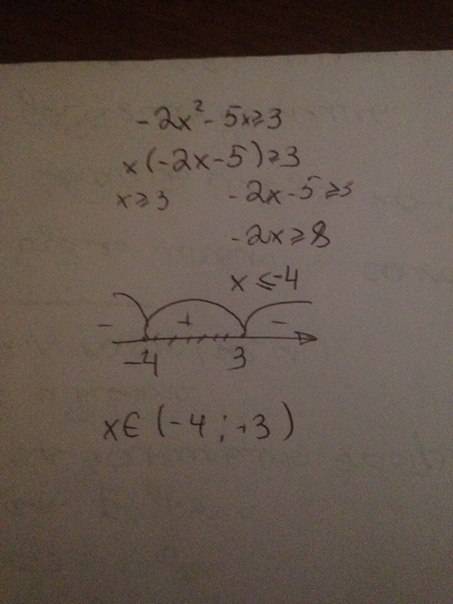 -2x²-5x≥3
x(-2x-5)≥3
x≥3 -2x-5≥3
-2x≥8
x≤-4
- + -
-4 3
x∈(-4;+3)